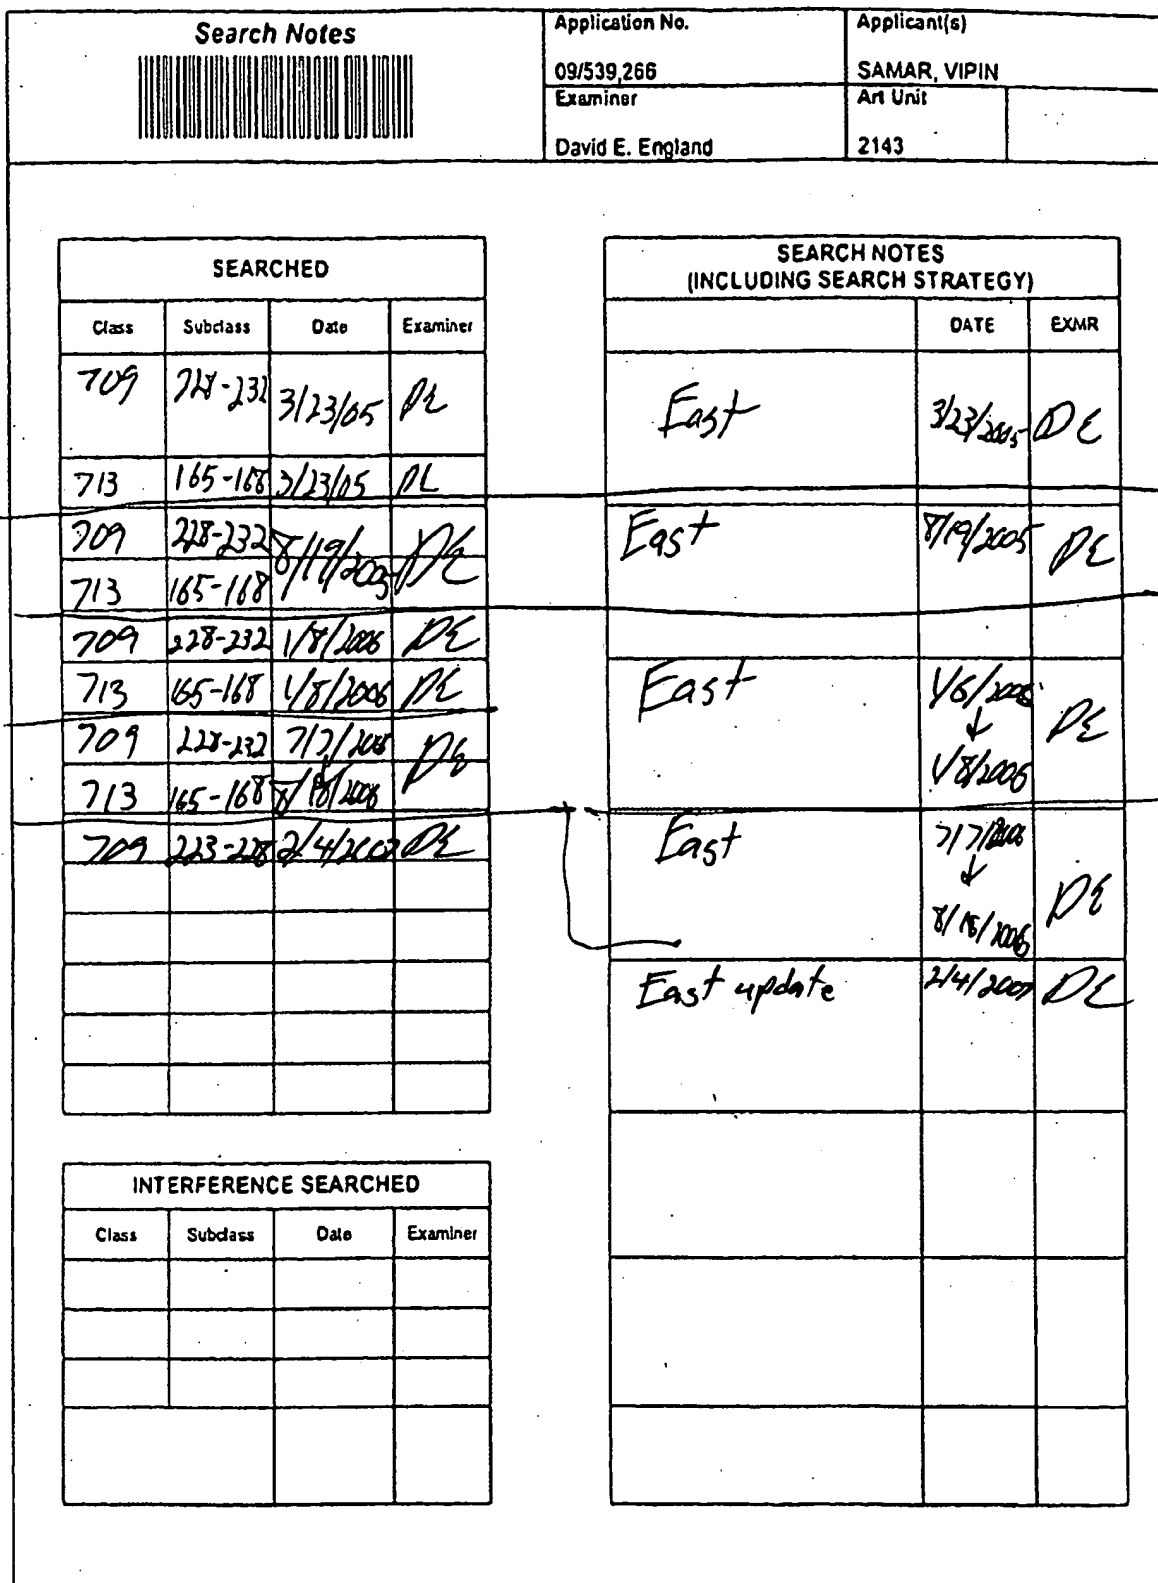 Search Notes
Application No.
09/539,266
Applicant(s)
SAMAR, VIPIN
Examiner
David E. England
Art Unit
2143
SEARCHED
Class Subclass Date Examiner
709 228-232 3/23/05 DE
713 165-168 3/23/05 DE
709 228-232 8/19/2005 DE
713 165-168
709 228-232 1/8/2006 DE
713 165-168 1/8/2006 DE
709 228-232 7/7/2006 DE
713 165-168 8/18/2006
709 223-228 2/4/2007 DE
INTERFERENCE SEARCHED
Class Subclass Date Examiner
SEARCH NOTES
(INCLUDING SEARCH STRATEGY)
DATE EXMR
East 3/23/2005 DE
East 8/19/2005 DE
East 1/6/2006 DE
↓
1/8/2006
East 7/7/2006 DE
↓
8/18/2006
East update 2/4/2007 DE